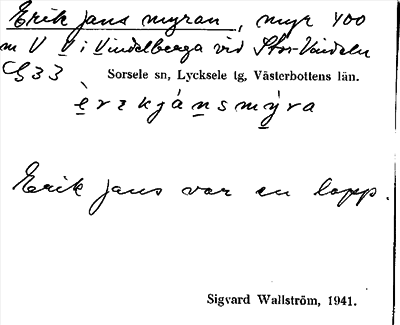 Erik Jans myran, myr 400
m V V i Vindelberga vid Stor-Vindeln
33 Sorsele sn, Lycksele lg, Västerbottens län.
èrekjánsmýra
Erik Jans var en lapp.
Sigvard Wallström, 1941.